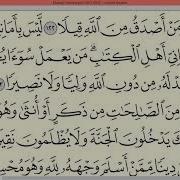 مَنْ أَصْدَقُ مِنَ ٱللَّهِ قِيلًا ١٢٢ لَّيْسَ بِأَمَانِ
انِيِّ أَهْلِ ٱلْكِتَٰبِ ۗ مَن يَعْمَلْ سُوٓءًا يُ
دْ لَهُۥ مِن دُونِ ٱللَّهِ وَلِيًّا وَلَا نَصِيرًا
مِنَ ٱلصَّٰلِحَٰتِ مِن ذَكَرٍ أَوْ أُنثَىٰ وَهُوَ
كَ يَدْخُلُونَ ٱلْجَنَّةَ وَلَا يُظْلَمُونَ نَقِيرًا
دِينًا مِّمَّنْ أَسْلَمَ وَجْهَهُۥ لِلَّهِ وَهُوَ مُحْ